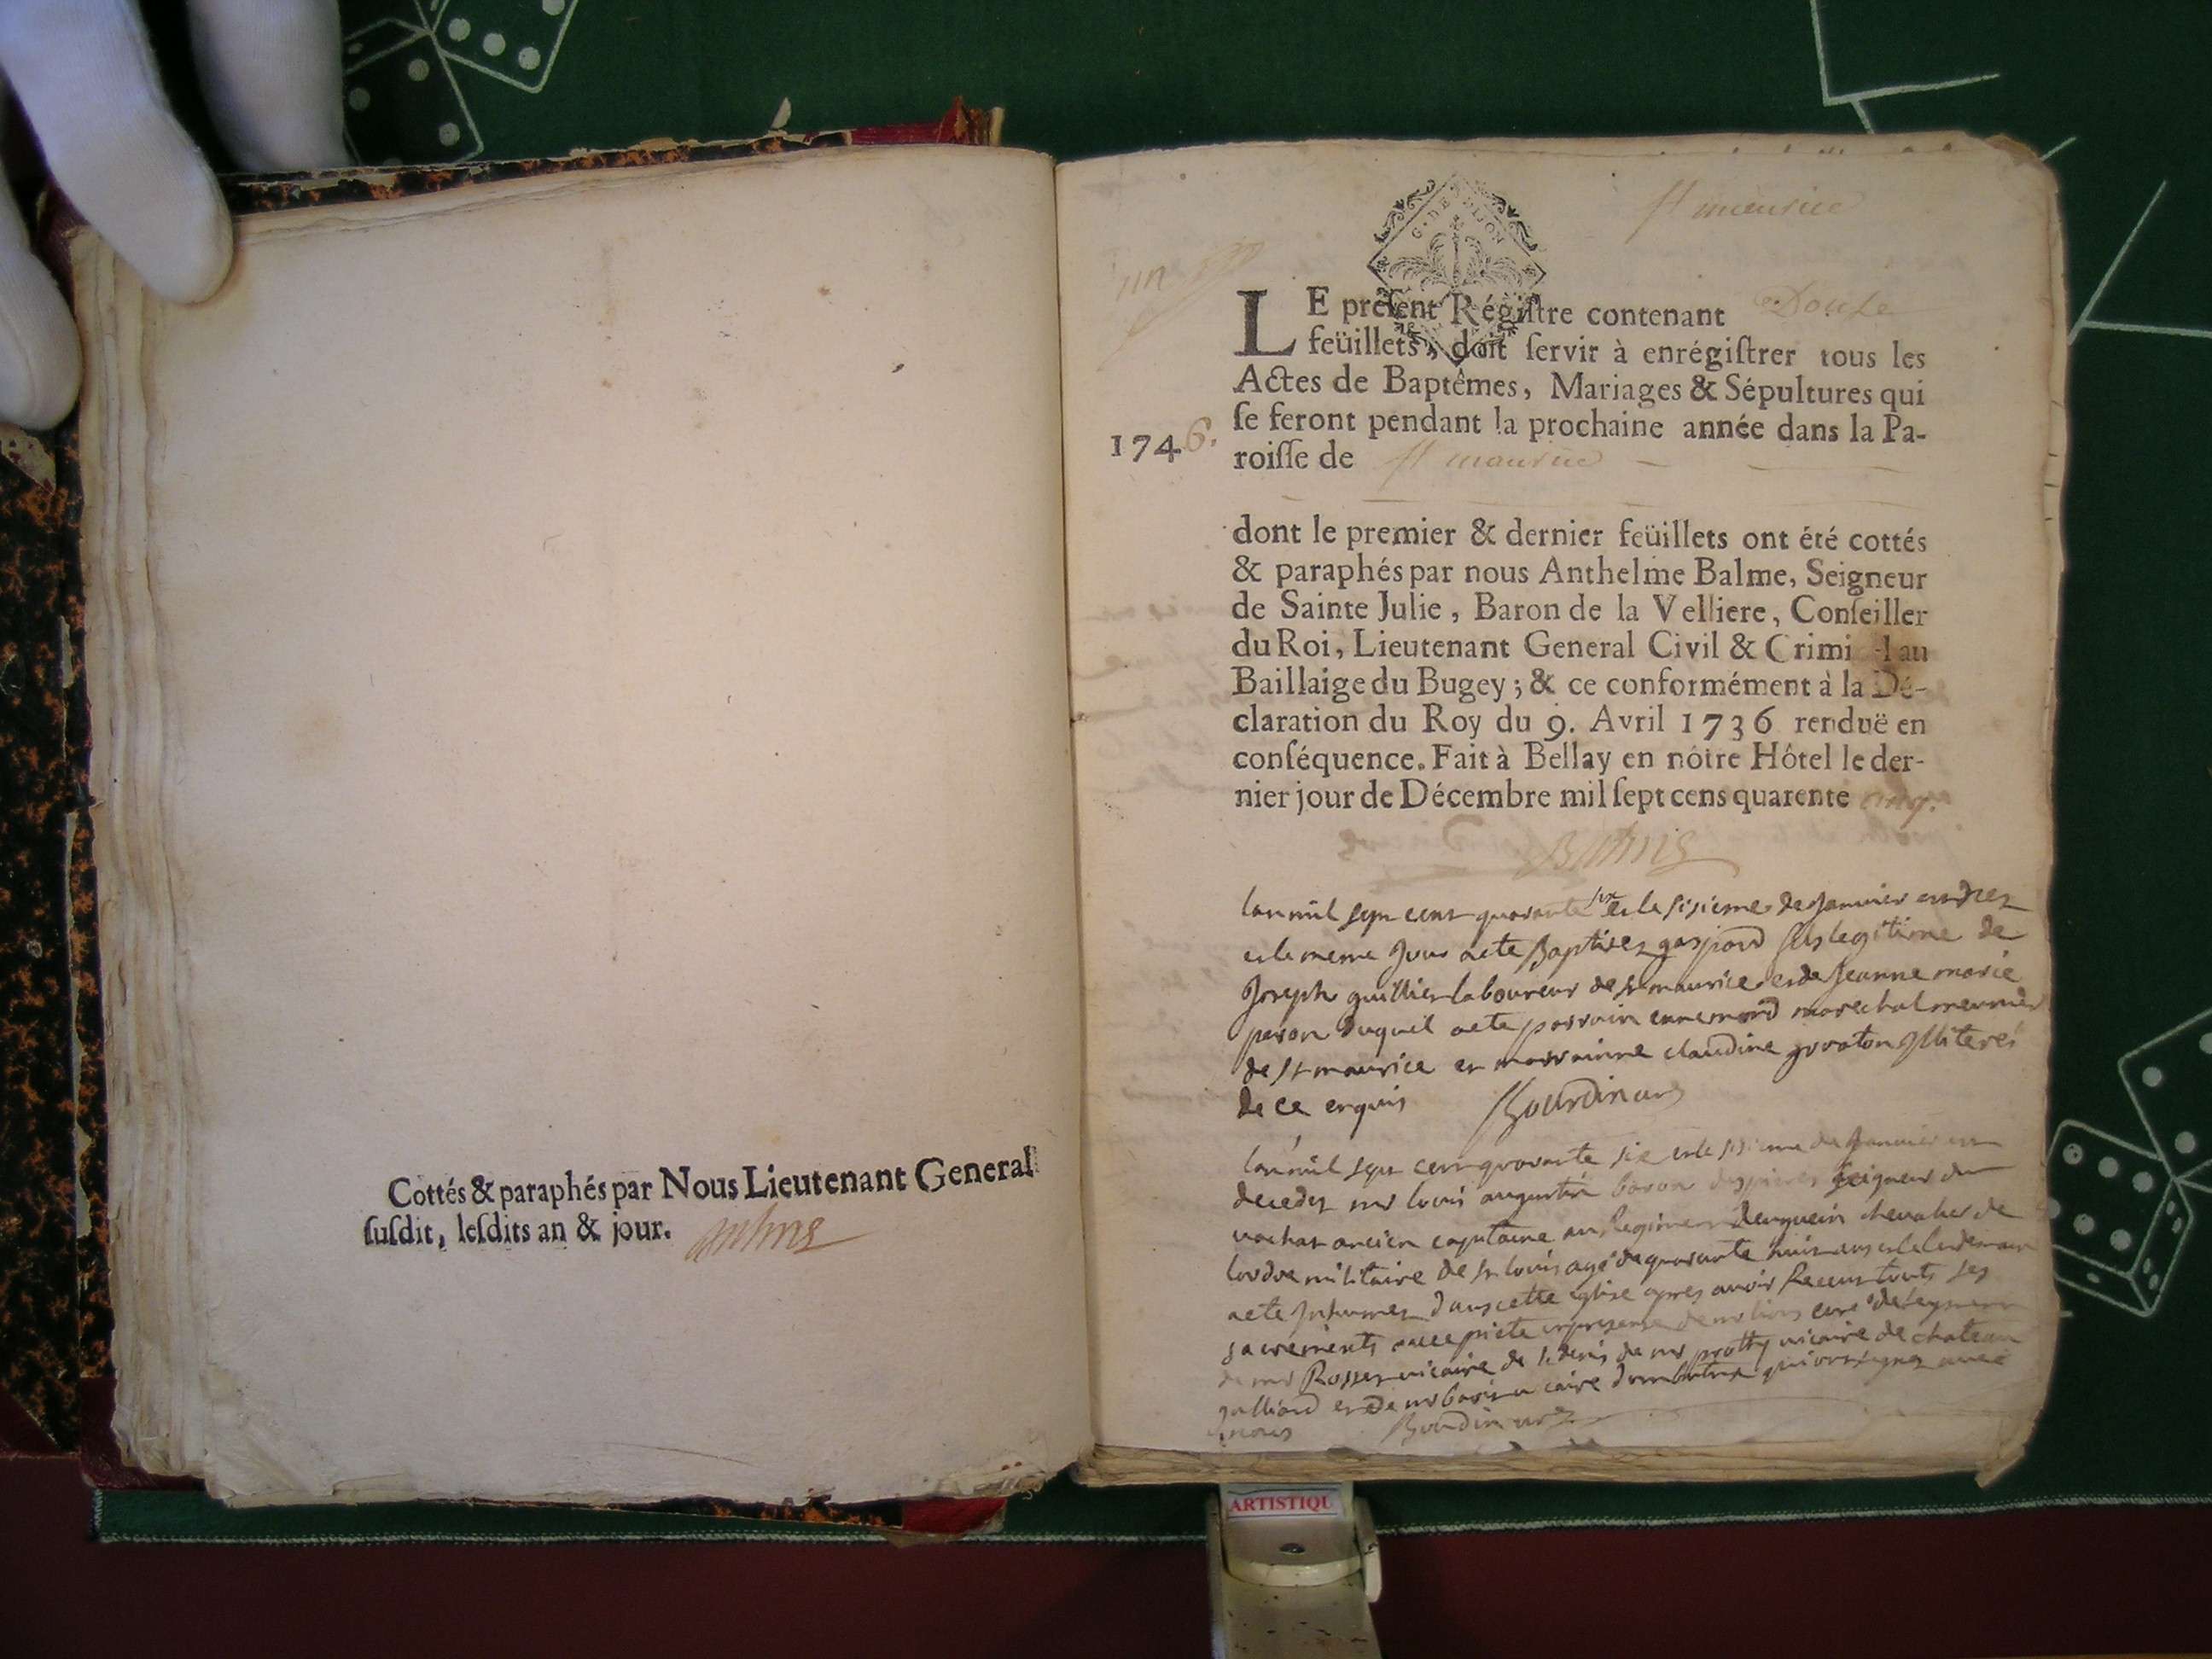 Cottés & paraphés par Nous Lieutenant General
ſuſdit, leſdits an & jour.
G. DE DIJON
st maurice
un
LE préſent Régiſtre contenant Douſe
feüillets, doit ſervir à enrégiſtrer tous les
Actes de Baptêmes, Mariages & Sépultures qui
ſe feront pendant la prochaine année dans la Pa-
1746.
roiſſe de st maurice
dont le premier & dernier feüillets ont été cottés
& paraphés par nous Anthelme Balme, Seigneur
de Sainte Julie, Baron de la Velliere, Conſeiller
du Roi, Lieutenant General Civil & Crimi l au
Baillaige du Bugey; & ce conformément à la Dé-
claration du Roy du 9. Avril 1736 renduë en
conſéquence. Fait à Bellay en nôtre Hôtel le der-
nier jour de Décembre mil ſept cens quarente cinq.
lan mil sept cent quarante six et le sisieme de Janvier est nez
et le meme Jour a ete Baptisez gaspard fils legitime de
Joseph guillier laboureur de st maurice et de Jeanne marie
peron duquel a ete parrain ennemond marechal meunier
de st maurice et marrainne claudine Illiteres
de ce enquis Bourdin curé
lan mil sept cent quarante six et le sisieme de Janvier est
decedez mr louis augustin baron seigneur du
vachat ancien capitaine au Regiment denguein chevalier de
lordre militaire de st louis agé de quarante huit ans et le lendemain
a ete Inhumez dans cette eglise apres avoir Receu touts ses
sacrements avec pieté en presence de mr curé de
de mr Rosset vicaire de st denis de mr vicaire de chateau
galliard et de mr vicaire qui ont signez avec
Bourdin curé
ARTISTIQU